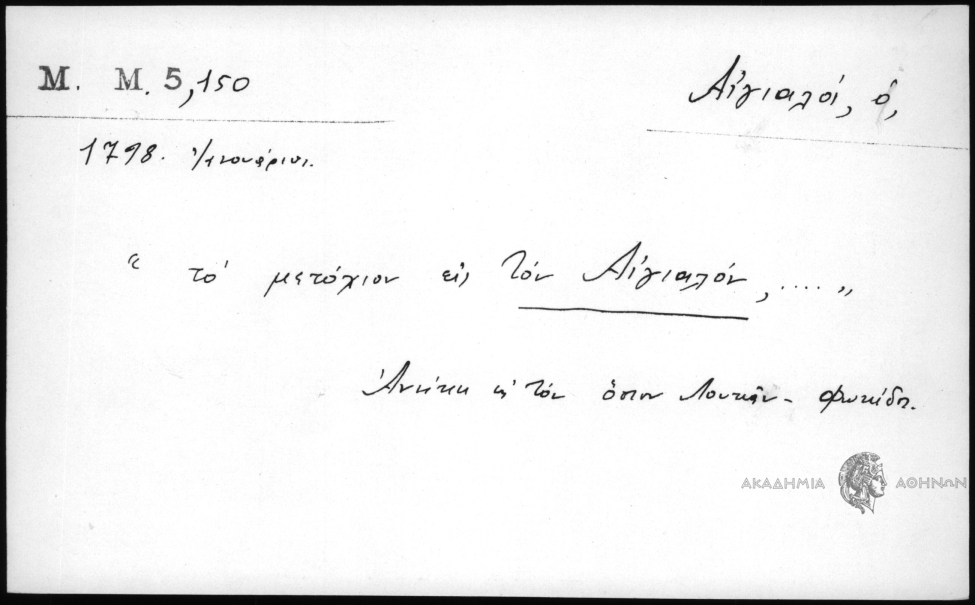 Μ. Μ. 5,150
Αἰγιαλός, ὁ,
1798. Ἰανουάριος.
“ τὸ μετόχιον εἰς τὸν Αἰγιαλόν, .... „
Ἀνήκει εἰς τὸν ὅσιον Λουκᾶν - Φωκίδος.
ΑΚΑΔΗΜΙΑ ΑΘΗΝΩΝ